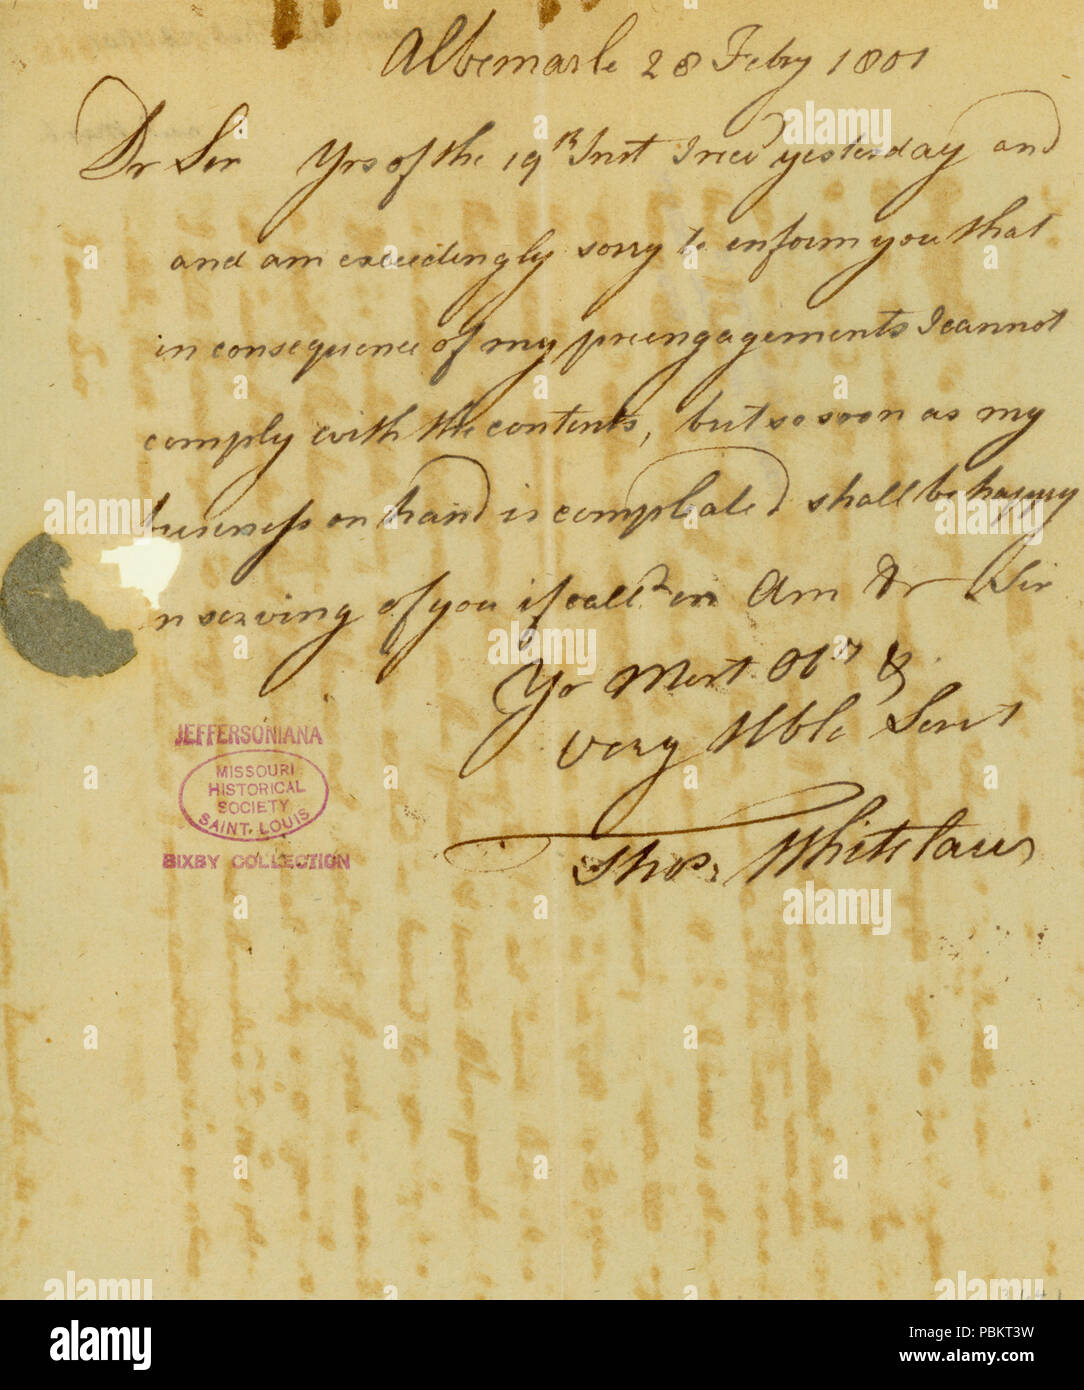 Albemarle 28 Febry 1801
Dr Sir Yrs of the 19th Inst I recd yesterday and
and am exceedingly sorry to inform you that
in consequence of my preengagements I cannot
comply with the contents, but so soon as my
business on hand is compleated shall be happy
n serving of you if calld on Am Dr Sir
Yr Most Obt &
very Hble Servt
Thos. Whitelaw
JEFFERSONIANA
MISSOURI
HISTORICAL
SOCIETY
SAINT. LOUIS
BIXBY COLLECTION
alamy
Image ID: PBKT3W
www.alamy.com